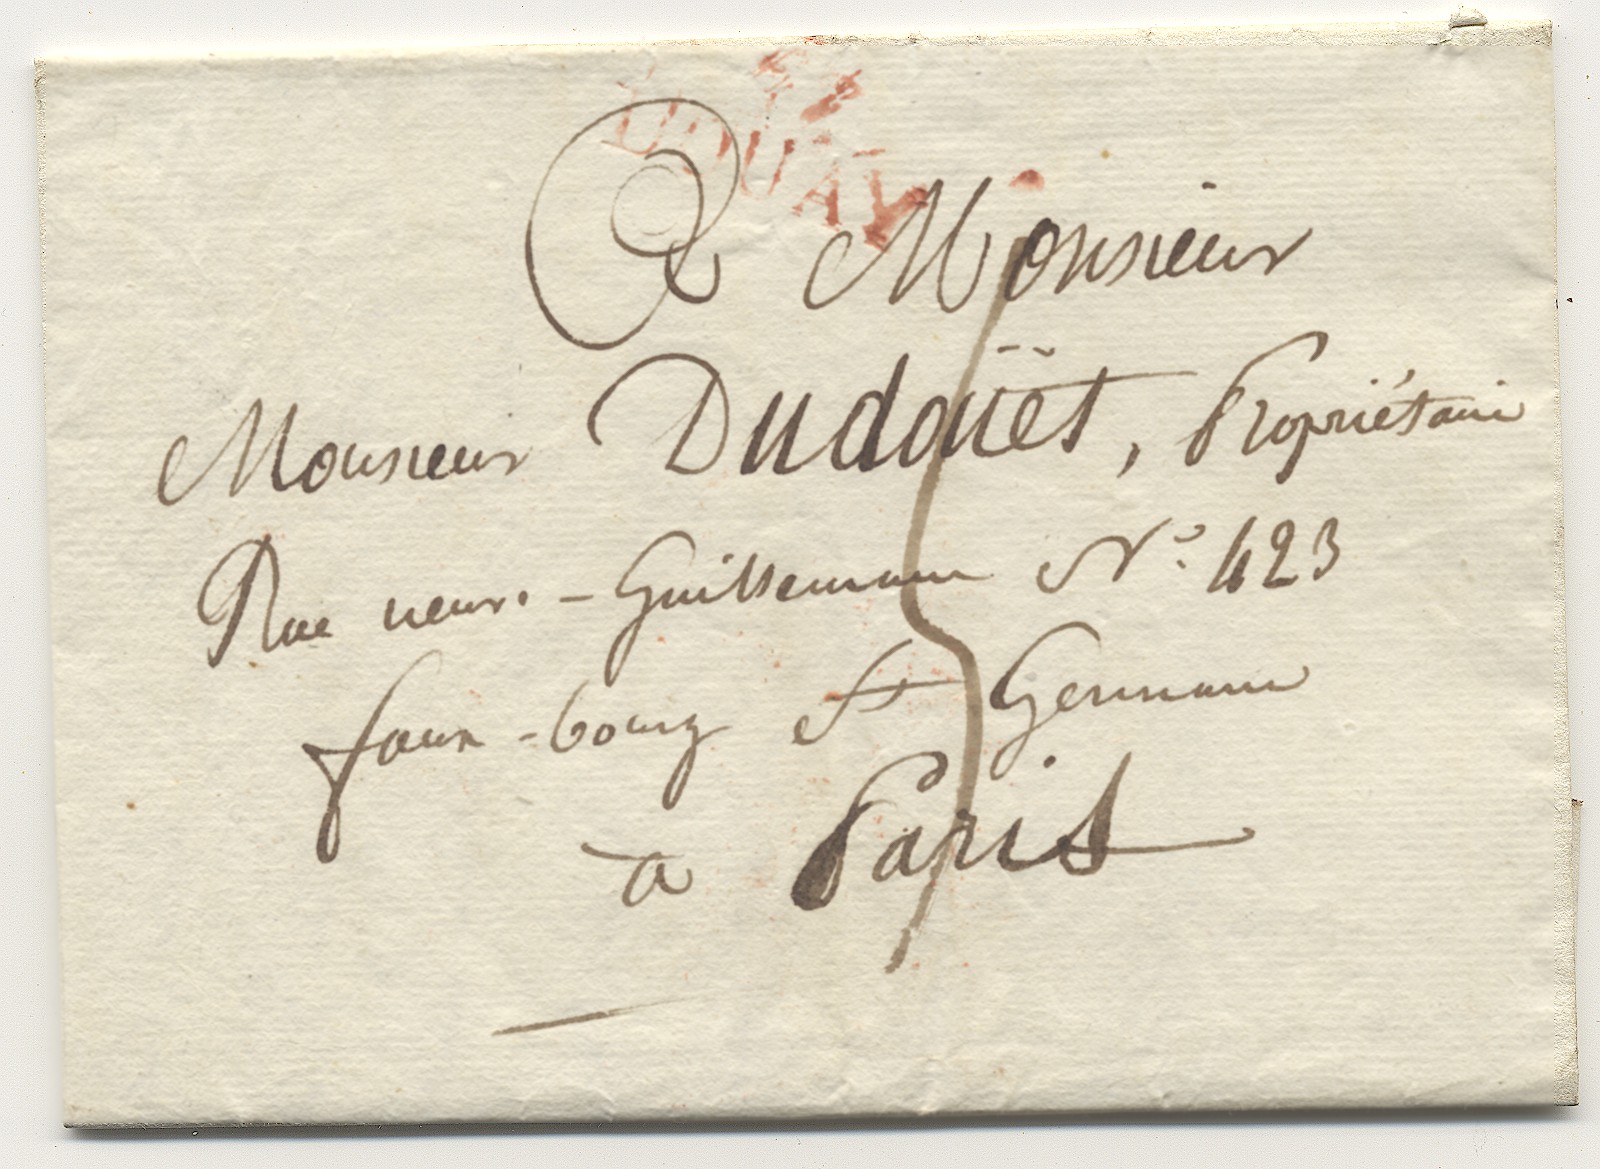 DOUAY
A Monsieur
Monsieur Dudoüet, Propriétaire
Rue neuve - Guillemain N.° 423
faux-bourg St Germain
à Paris